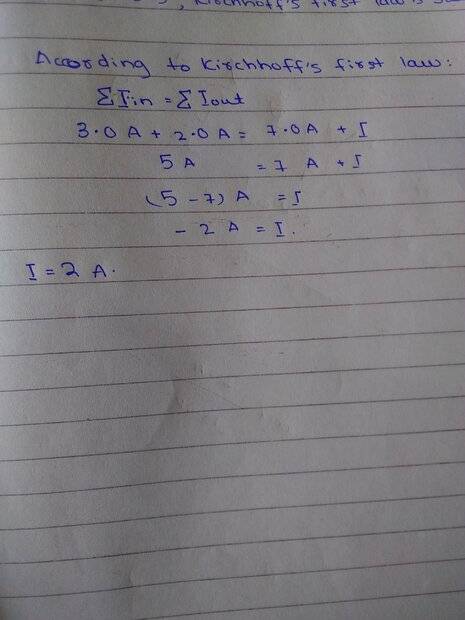 , Kirchhoff's first law is
According to Kirchhoff's first law:
ΣIin = ΣIout
3.0 A + 2.0 A = 7.0 A + I
5 A = 7 A + I
(5 - 7) A = I
- 2 A = I.
I = 2 A.